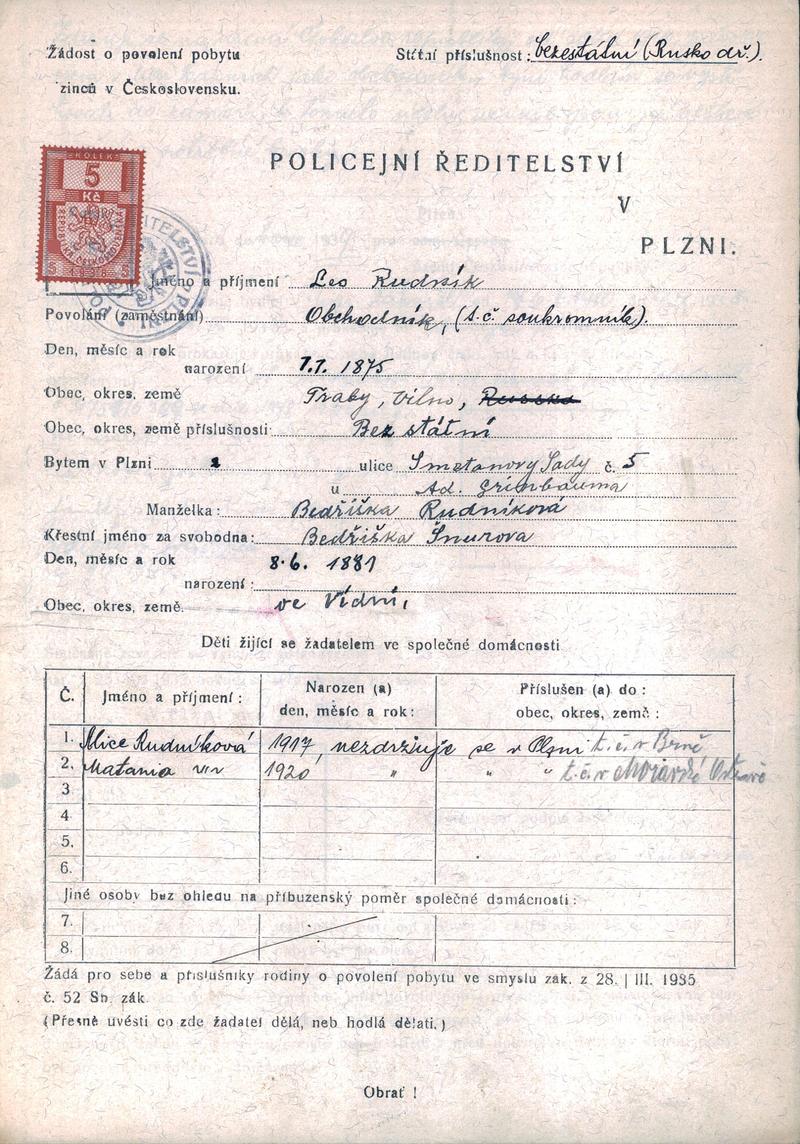 Žádost o povolení pobytu
Státní příslušnost: bezestátní (Rusko dř.).
zinců v Československu.
KOLEK
5
Kč
REPUBLIKA ČESKOSLOVENSKÁ
POLICEJNÍ ŘEDITELSTVÍ
V
PLZNI.
Jméno a příjmení Leo Rudník
Povolání (zaměstnání) Obchodník, (t.č. soukromník).
Den, měsíc a rok
narození 7.7. 1875
Obec, okres, země Traby, Vilno,
Obec, okres, země příslušnosti: Bez státní
Bytem v Plzni 2 ulice Smetanovy Sady č. 5
u Ad. Grünbauma
Manželka: Bedřiška Rudníková
Křestní jméno za svobodna: Bedřiška Šnurova
Den, měsíc a rok 8.6. 1881
narození:
Obec, okres, země. ve Vídni,
Děti žijící se žadatelem ve společné domácnosti
Č. Jméno a příjmení: Narozen (a) den, měsíc a rok: Příslušen (a) do: obec, okres, země:
1. Alice Rudníková 1917, nezdržuje se v Plzni t.č. v Brně
2. Matania 1920 " " " t.č. v Moravské Ostravě
3
4
5.
6.
Jiné osoby bez ohledu na příbuzenský poměr společné domácnosti:
7.
8.
Žádá pro sebe a příslušníky rodiny o povolení pobytu ve smyslu zák. z 28. | III. 1935
č. 52 Sb. zák.
(Přesně uvésti co zde žadatel dělá, neb hodlá dělati.)
Obrať !